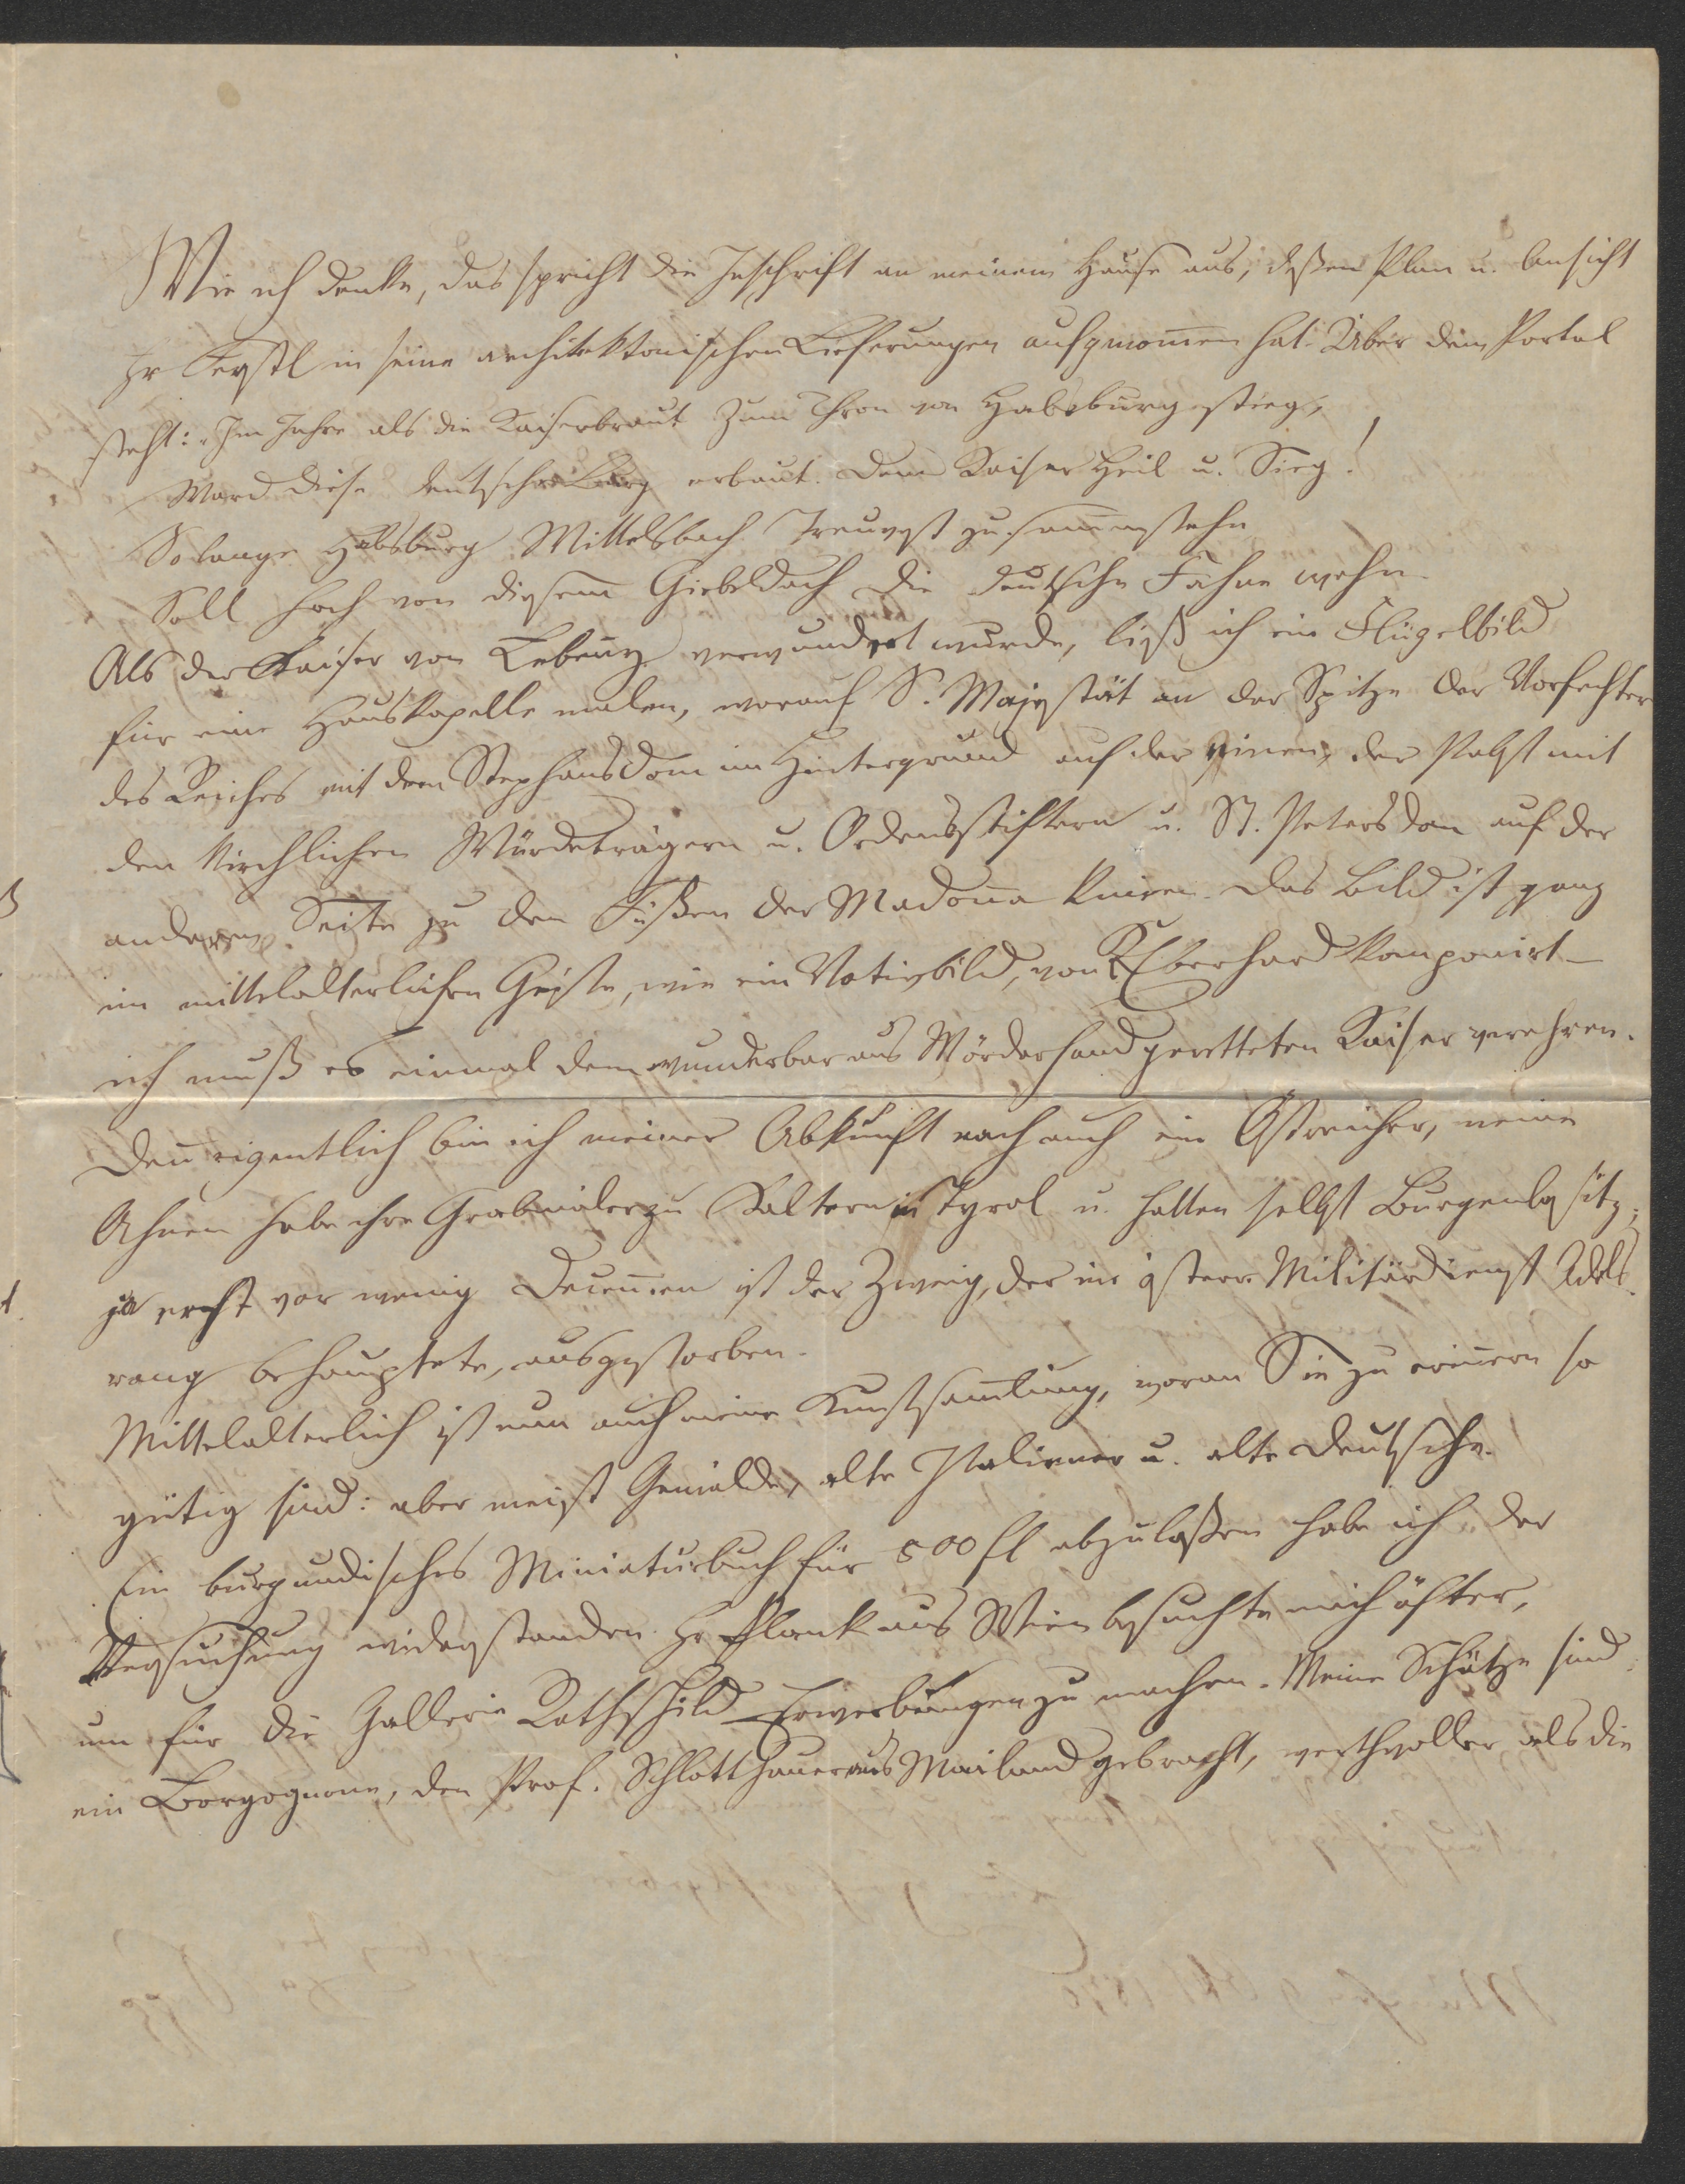 Wie ich denke, das spricht die Inschrift an meinem Hause aus, deßen Plan u. Ansicht
Hr in seine architektonischen Lieferungen aufgenomen hat. Über dem Portal
steht: „Im Jahre als die Kaiserbraut Zum Thron von Habsburg stieg,
Ward diese deutsche Burg erbaut. Dem Kaiser Heil u. Sieg!
Solange Habsburg Wittelsbach Treuvest zusamenstehn
Soll hoch von diesem Giebeldach die deutsche Fahne wehn.
Als der Kaiser von Lebeny verwundet wurde, ließ ich ein Flügelbild
für eine Hauskapelle malen, worauf S. Majestät an der Spitze der Vorfechter
des Reiches mit dem Stephansdom im Hintergrund auf der einen, der Pabst mit
den kirchlichen Würdeträgern u. Ordensstiftern u. St. Petersdom auf der
anderen Seite zu den Füßen der Madona knieen. Das Bild ist ganz
im mittelalterlichen Geiste, wie ein Votivbild, von Eberhard komponirt –
ich muß es einmal dem wunderbar aus Mörderhand geretteten Kaiser verehren.
Den eigentlich bin ich meiner Abkunft nach auch ein Östreicher, meine
Ahnen habe ihre Grabmäler zu Kaltern in Tyrol u. hatten selbst Burgenbesitz;
ja erst vor wenig Decenien ist der Zweig, der im österr Militärdienst Adels
rang behauptete, ausgestorben.
Mittelalterlich ist nun auch meine Kunstsamlung, woran Sie zu erinern so
gütig sind: aber meist Gemälde, alte Italiener u. alte Deutsche.
Ein burgundisches Miniaturbuch für 500 fl abzulaßen habe ich der
Versuchung widerstanden. Hr Plank aus Wien besuchte mich öfter,
um für die Gallerie Rothschild Erwerbungen zu machen. Meine Schätze sind
ein Borgognone, den Prof. Schlotthauer aus Mailand gebracht, werthvoller als die